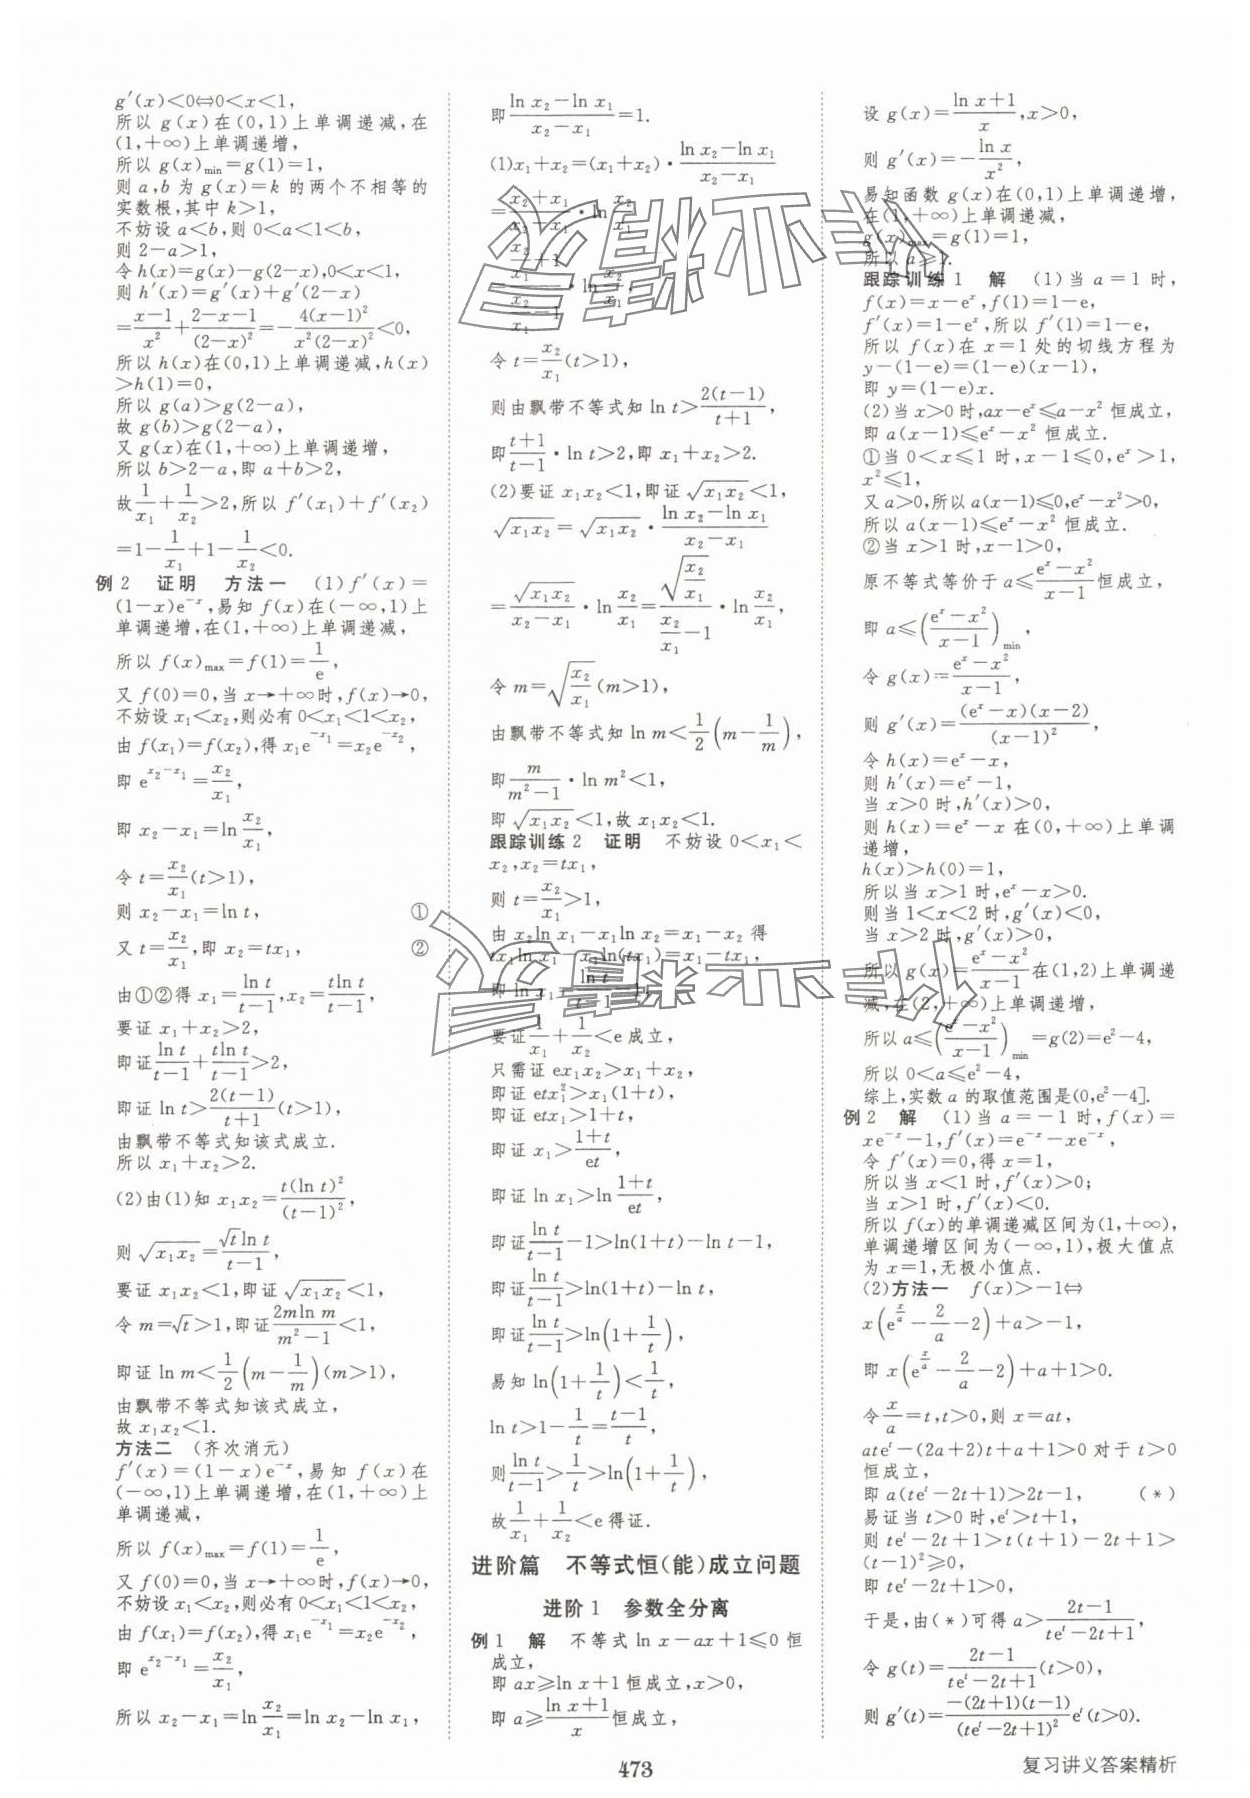 g′(x)<0⇔0<x<1,
所以 g(x)在(0,1)上单调递减,在
(1,+∞)上单调递增,
所以 g(x)min=g(1)=1,
则 a,b 为 g(x)=k 的两个不相等的
实数根,其中 k>1,
不妨设 a<b,则 0<a<1<b,
则 2-a>1,
令 h(x)=g(x)-g(2-x),0<x<1,
则 h′(x)=g′(x)+g′(2-x)
=(x-1)/x²+(2-x-1)/(2-x)²=-4(x-1)²/(x²(2-x)²)<0,
所以 h(x)在(0,1)上单调递减,h(x)
>h(1)=0,
所以 g(a)>g(2-a),
故 g(b)>g(2-a),
又 g(x)在(1,+∞)上单调递增,
所以 b>2-a,即 a+b>2,
故 1/x₁+1/x₂>2,所以 f′(x₁)+f′(x₂)
=1-1/x₁+1-1/x₂<0.
例2 证明 方法一 (1)f′(x)=
(1-x)e⁻ˣ,易知 f(x)在(-∞,1)上
单调递增,在(1,+∞)上单调递减,
所以 f(x)max=f(1)=1/e,
又 f(0)=0,当 x→+∞时,f(x)→0,
不妨设 x₁<x₂,则必有 0<x₁<1<x₂,
由 f(x₁)=f(x₂),得 x₁e^(-x₁)=x₂e^(-x₂),
即 e^(x₂-x₁)=x₂/x₁,
即 x₂-x₁=ln x₂/x₁,
令 t=x₂/x₁(t>1),
则 x₂-x₁=ln t, ①
又 t=x₂/x₁,即 x₂=tx₁, ②
由①②得 x₁=ln t/(t-1),x₂=tln t/(t-1),
要证 x₁+x₂>2,
即证 ln t/(t-1)+tln t/(t-1)>2,
即证 ln t>2(t-1)/(t+1)(t>1),
由飘带不等式知该式成立.
所以 x₁+x₂>2.
(2)由(1)知 x₁x₂=t(ln t)²/(t-1)²,
则 √(x₁x₂)=√t ln t/(t-1),
要证 x₁x₂<1,即证 √(x₁x₂)<1,
令 m=√t>1,即证 2mln m/(m²-1)<1,
即证 ln m<1/2(m-1/m)(m>1),
由飘带不等式知该式成立,
故 x₁x₂<1.
方法二 (齐次消元)
f′(x)=(1-x)e⁻ˣ,易知 f(x)在
(-∞,1)上单调递增,在(1,+∞)上
单调递减,
所以 f(x)max=f(1)=1/e,
又 f(0)=0,当 x→+∞时,f(x)→0,
不妨设 x₁<x₂,则必有 0<x₁<1<x₂,
由 f(x₁)=f(x₂),得 x₁e^(-x₁)=x₂e^(-x₂),
即 e^(x₂-x₁)=x₂/x₁,
所以 x₂-x₁=ln x₂/x₁=ln x₂-ln x₁,
即 (ln x₂-ln x₁)/(x₂-x₁)=1.
(1)x₁+x₂=(x₁+x₂)·(ln x₂-ln x₁)/(x₂-x₁)
=(x₂+x₁)/(x₂-x₁)·ln x₂/x₁
=(x₂/x₁+1)/(x₂/x₁-1)·ln x₂/x₁,
令 t=x₂/x₁(t>1),
则由飘带不等式知 ln t>2(t-1)/(t+1),
即 (t+1)/(t-1)·ln t>2,即 x₁+x₂>2.
(2)要证 x₁x₂<1,即证 √(x₁x₂)<1,
√(x₁x₂)=√(x₁x₂)·(ln x₂-ln x₁)/(x₂-x₁)
=√(x₁x₂)/(x₂-x₁)·ln x₂/x₁=√(x₂/x₁)/(x₂/x₁-1)·ln x₂/x₁,
令 m=√(x₂/x₁)(m>1),
由飘带不等式知 ln m<1/2(m-1/m),
即 m/(m²-1)·ln m²<1,
即 √(x₁x₂)<1,故 x₁x₂<1.
跟踪训练2 证明 不妨设 0<x₁<
x₂,x₂=tx₁,
则 t=x₂/x₁>1,
由 x₂ln x₁-x₁ln x₂=x₁-x₂ 得
tx₁ln x₁-x₁ln(tx₁)=x₁-tx₁,
即 ln x₁=ln t/(t-1)-1,
要证 1/x₁+1/x₂<e 成立,
只需证 ex₁x₂>x₁+x₂,
即证 etx₁²>x₁(1+t),
即证 etx₁>1+t,
即证 x₁>(1+t)/et,
即证 ln x₁>ln (1+t)/et,
即证 ln t/(t-1)-1>ln(1+t)-ln t-1,
即证 ln t/(t-1)>ln(1+t)-ln t,
即证 ln t/(t-1)>ln(1+1/t),
易知 ln(1+1/t)<1/t,
ln t>1-1/t=(t-1)/t,
则 ln t/(t-1)>1/t>ln(1+1/t),
故 1/x₁+1/x₂<e 得证.
进阶篇 不等式恒(能)成立问题
进阶1 参数全分离
例1 解 不等式 ln x-ax+1≤0 恒
成立,
即 ax≥ln x+1 恒成立,x>0,
即 a≥(ln x+1)/x 恒成立,
设 g(x)=(ln x+1)/x,x>0,
则 g′(x)=-ln x/x²,
易知函数 g(x)在(0,1)上单调递增,
在(1,+∞)上单调递减,
g(x)max=g(1)=1,
所以 a≥1.
跟踪训练1 解 (1)当 a=1 时,
f(x)=x-eˣ,f(1)=1-e,
f′(x)=1-eˣ,所以 f′(1)=1-e,
所以 f(x)在 x=1 处的切线方程为
y-(1-e)=(1-e)(x-1),
即 y=(1-e)x.
(2)当 x>0 时,ax-eˣ≤a-x² 恒成立,
即 a(x-1)≤eˣ-x² 恒成立.
①当 0<x≤1 时,x-1≤0,eˣ>1,
x²≤1,
又 a>0,所以 a(x-1)≤0,eˣ-x²>0,
所以 a(x-1)≤eˣ-x² 恒成立.
②当 x>1 时,x-1>0,
原不等式等价于 a≤(eˣ-x²)/(x-1)恒成立,
即 a≤((eˣ-x²)/(x-1))min,
令 g(x)=(eˣ-x²)/(x-1),
则 g′(x)=(eˣ-x)(x-2)/(x-1)²,
令 h(x)=eˣ-x,
则 h′(x)=eˣ-1,
当 x>0 时,h′(x)>0,
则 h(x)=eˣ-x 在(0,+∞)上单调
递增,
h(x)>h(0)=1,
所以当 x>1 时,eˣ-x>0.
则当 1<x<2 时,g′(x)<0,
当 x>2 时,g′(x)>0,
所以 g(x)=(eˣ-x²)/(x-1)在(1,2)上单调递
减,在(2,+∞)上单调递增,
所以 a≤((eˣ-x²)/(x-1))min=g(2)=e²-4,
所以 0<a≤e²-4,
综上,实数 a 的取值范围是(0,e²-4].
例2 解 (1)当 a=-1 时,f(x)=
xe⁻ˣ-1,f′(x)=e⁻ˣ-xe⁻ˣ,
令 f′(x)=0,得 x=1,
所以当 x<1 时,f′(x)>0;
当 x>1 时,f′(x)<0.
所以 f(x)的单调递减区间为(1,+∞),
单调递增区间为(-∞,1),极大值点
为 x=1,无极小值点.
(2)方法一 f(x)>-1⇔
x(e^(x/a)-2/a-2)+a>-1,
即 x(e^(x/a)-2/a-2)+a+1>0.
令 x/a=t,t>0,则 x=at,
ateᵗ-(2a+2)t+a+1>0 对于 t>0
恒成立,
即 a(teᵗ-2t+1)>2t-1, (*)
易证当 t>0 时,eᵗ>t+1,
则 teᵗ-2t+1>t(t+1)-2t+1=
(t-1)²≥0,
即 teᵗ-2t+1>0,
于是,由(*)可得 a>(2t-1)/(teᵗ-2t+1),
令 g(t)=(2t-1)/(teᵗ-2t+1)(t>0),
则 g′(t)=-(2t+1)(t-1)/(teᵗ-2t+1)² eᵗ(t>0).
473
复习讲义答案精析
作业精灵
作业精灵